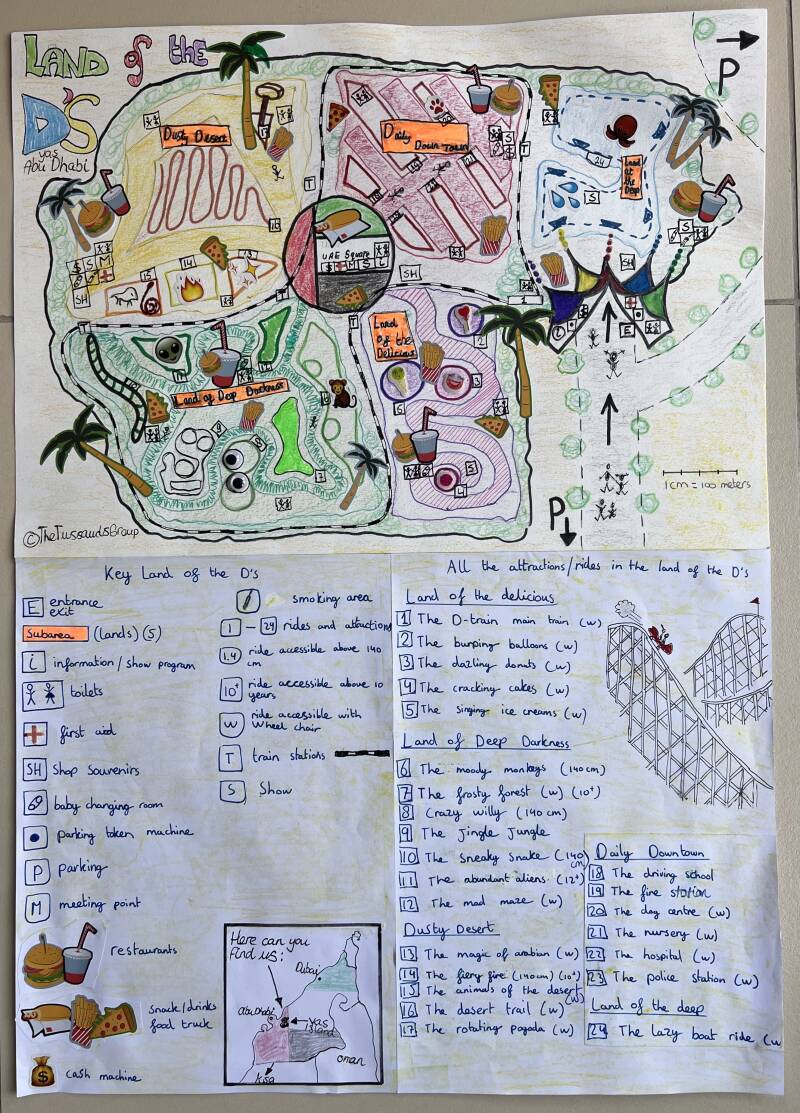 LAND of the
D'S
yas
Abu Dhabi
P
Dusty Desert
Daily
Down Town
Land
of the
Deep
24
S
T
T
16
15
14
$ S M
SH
UAE Square
SH
T
T
1
SH
E
Land
of the
Delicious
2
3
S
4
S
Land of Deep Darkness
9
7
1cm = 100 meters
P
©TheTussaudsGroup
Key Land of the D's
E entrance
exit
Subarea (lands) (5)
i information / show program
toilets
first aid
SH Shop Souvenirs
baby changing room
parking token machine
P parking
M meeting point
restaurants
Snack/drinks
food truck
$ cash machine
smoking area
1 - 24 rides and attractions
1.4 ride accessible above 140
cm
10+ ride accessible above 10
years
W ride accessible with
Wheel chair
T train stations
S Show
Here can you
find us:
Dubai
Abu Dhabi
yas
island
Oman
KSA
All the attractions/rides in the land of the D's
Land of the delicious
1 The D-train main train (w)
2 The burping balloons (w)
3 The dazling donuts (w)
4 The cracking cakes (w)
5 The singing ice creams (w)
Land of Deep Darkness
6 The moody monkeys (140cm)
7 The frosty forest (w) (10+)
8 Crazy willy (140 cm)
9 The Jingle Jungle
10 The Sneaky Snake (140
cm)
11 The abundant aliens (12+)
12 The mad maze (w)
Dusty Desert
13 The magic of arabian (w)
14 The fiery fire (140cm) (10+)
15 The animals of the desert
(w)
16 The desert trail (w)
17 The rotating pagoda (w)
Daily Downtown
18 The driving school
19 The fire station
20 The day centre (w)
21 The nursery (w)
22 The hospital (w)
23 The police station (w)
Land of the deep
24 The lazy boat ride (w